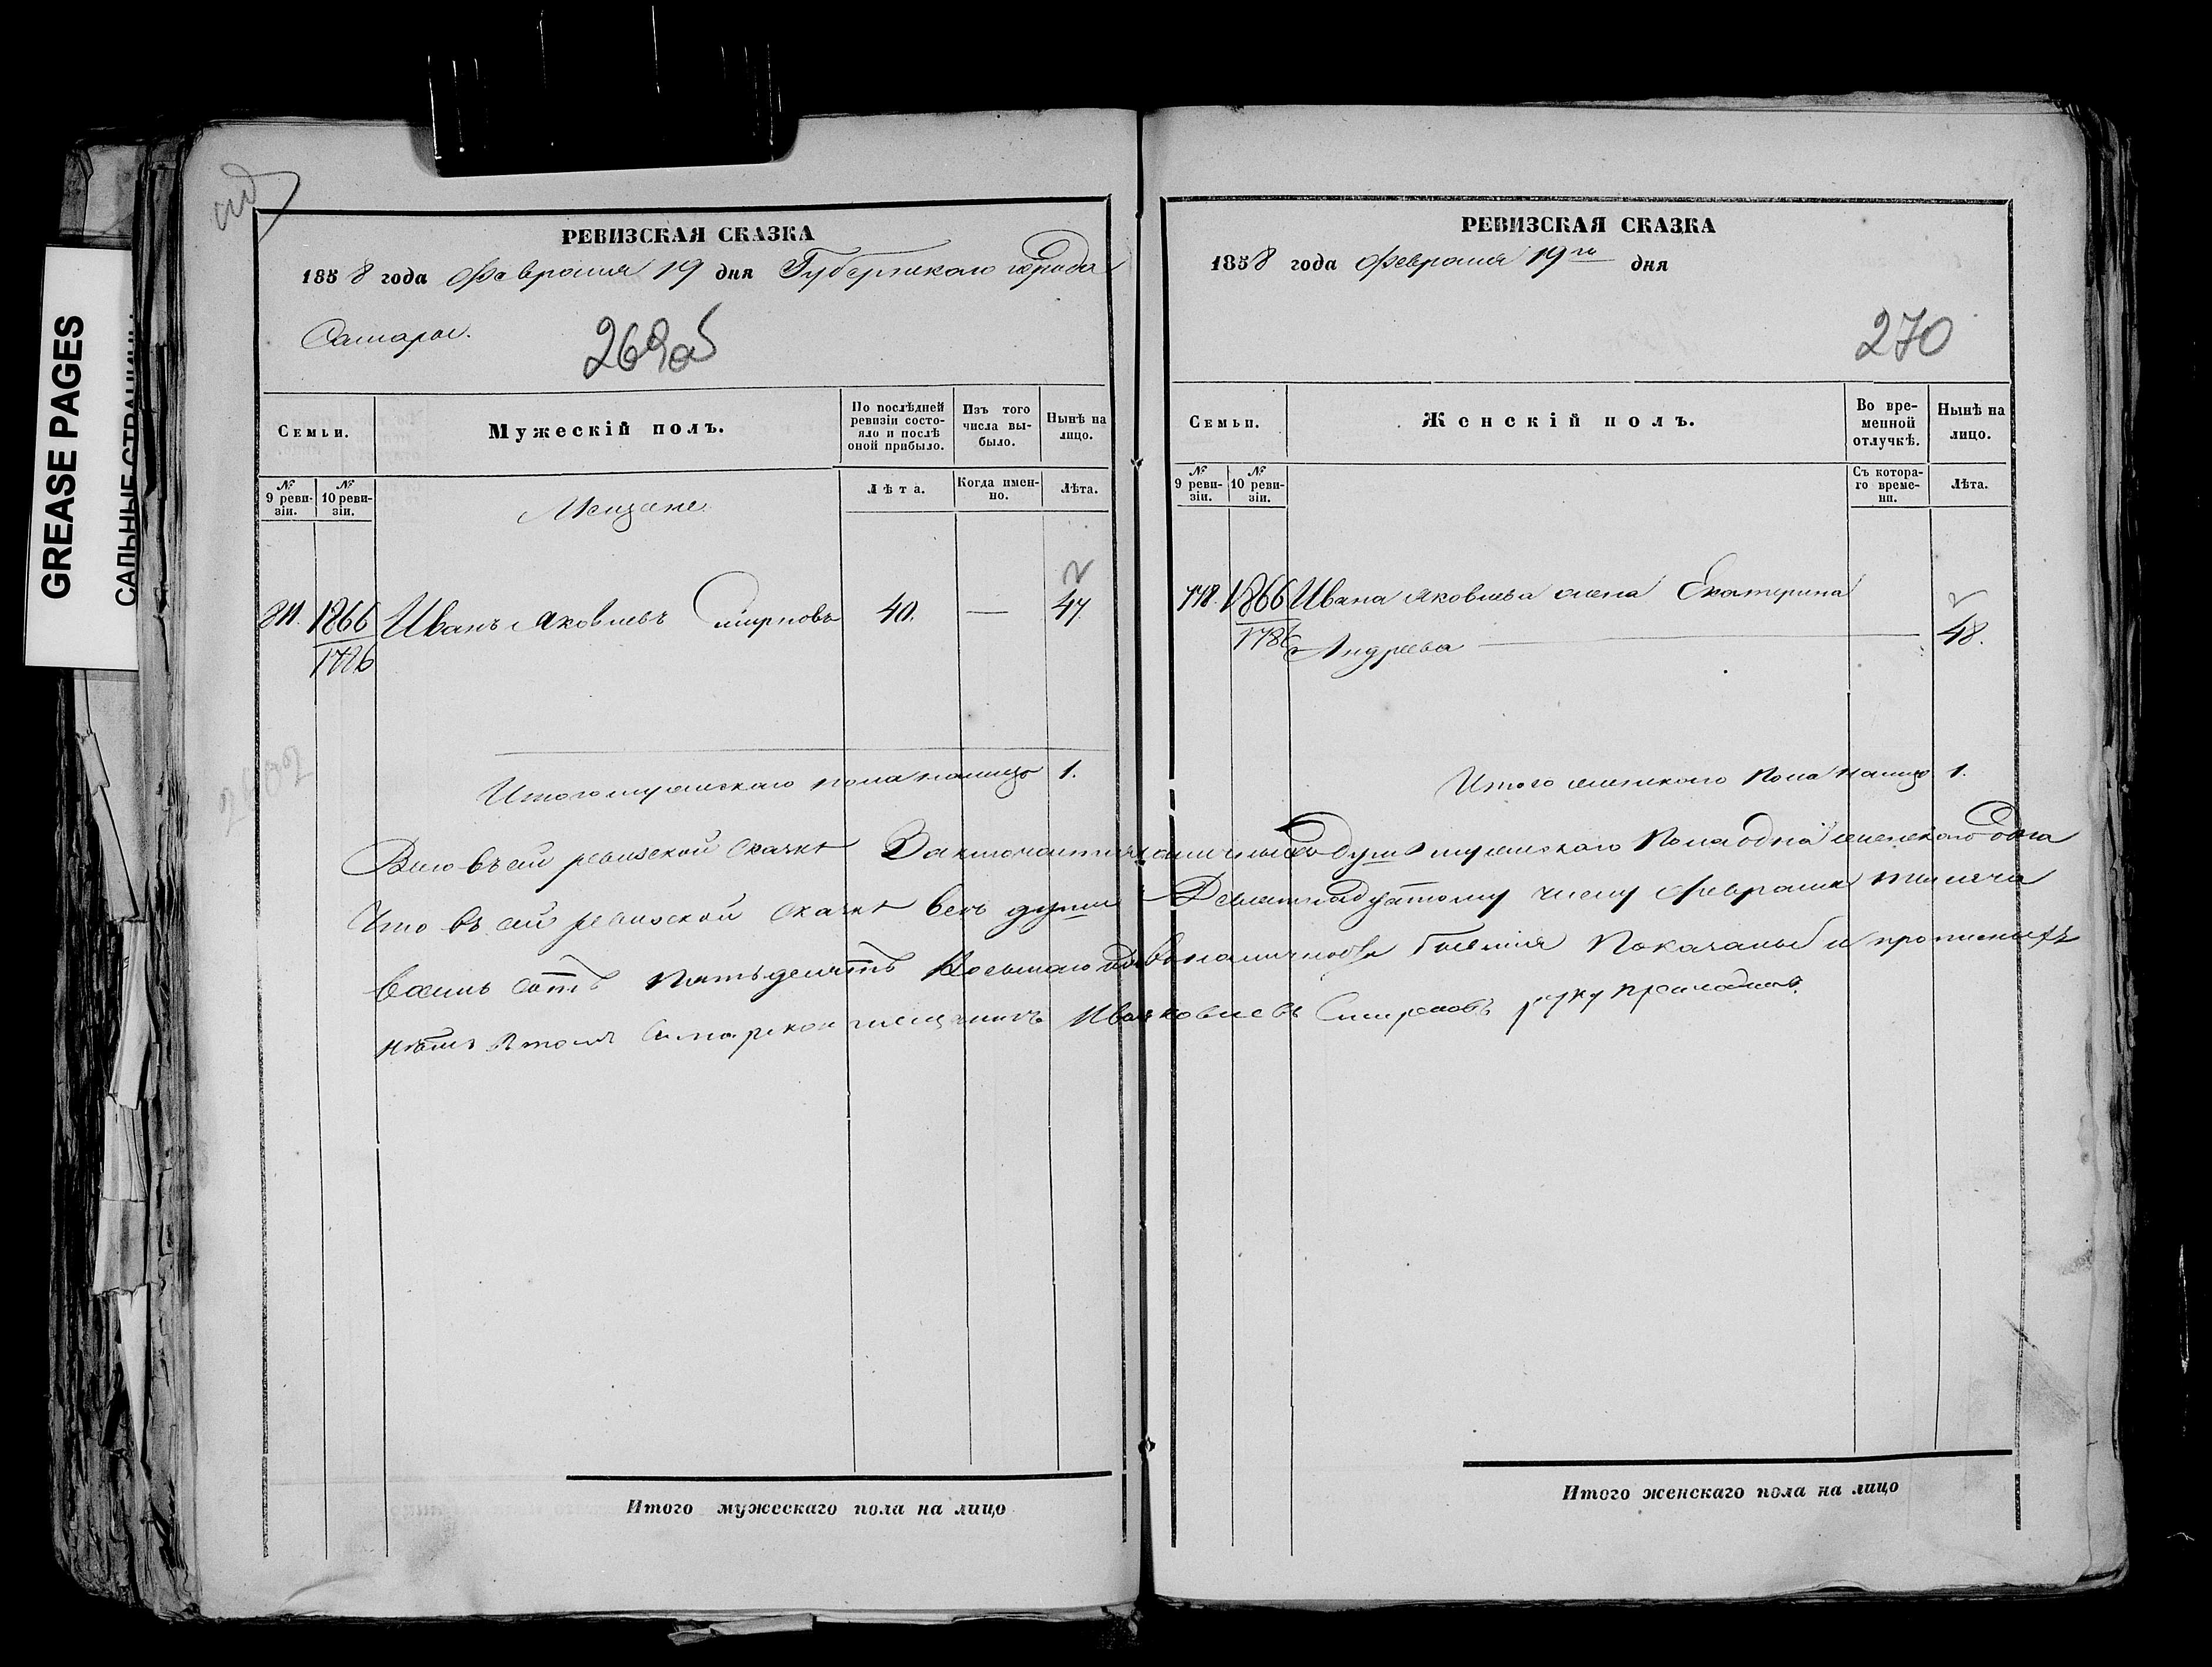 GREASE PAGES
САЛЬНЫЕ СТРАНИЦЫ
РЕВИЗСКАЯ СКАЗКА
1858 года Февраля 19 дня Губернскаго города
Самары.
269об
Семьи.
Мужескій полъ.
По послѣдней ревизіи состояло и послѣ оной прибыло.
Изъ того числа выбыло.
Нынѣ на лицо.
№ 9 ревизіи.
№ 10 ревизіи.
Мещане
Лѣта.
Когда именно.
Лѣта.
811. 1866 Иванъ Яковлевъ Смирновъ 40. — 47.
1786
Итого мужескаго пола налицо 1.
РЕВИЗСКАЯ СКАЗКА
1858 года Февраля 19го дня
270
Семьи.
Женскій полъ.
Во временной отлучкѣ.
Нынѣ на лицо.
№ 9 ревизіи.
№ 10 ревизіи.
Съ котораго времени.
Лѣта.
778. 1866 Ивана Яковлева жена Екатерина
1786 Андреева — 48.
Итого женскаго пола налицо 1.
въ сей ревизской сказкѣ Заключается наличныхъ душъ мужескаго пола одна женскаго одна
Что въ сей ревизской сказкѣ всѣ души Девятнадцатому числу Февраля тысяча
восемь сотъ пятьдесятъ восьмаго года въ наличности показаны и прописныхъ
нѣтъ въ томъ Самарской мещанинъ Иванъ Яковлевъ Смирновъ руку приложилъ.
Итого мужескаго пола на лицо
Итого женскаго пола на лицо